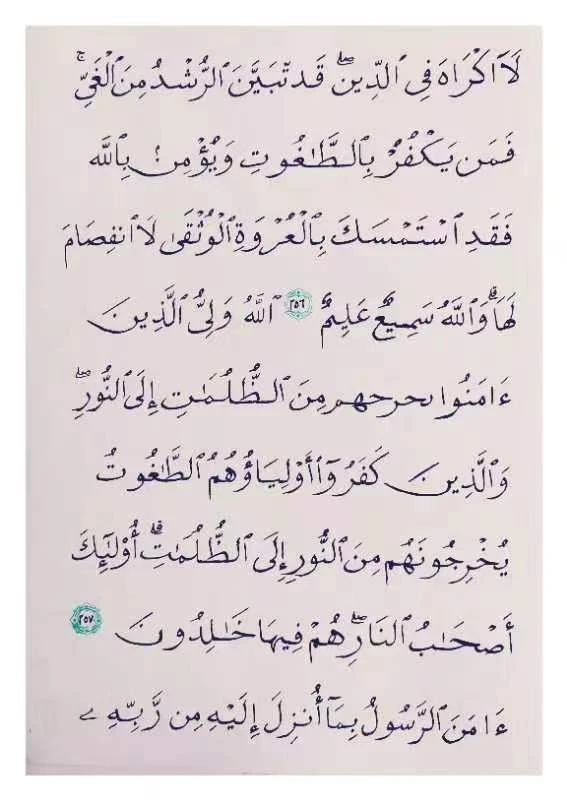 لَآ اكْرَاهَ فِى ٱلدِّينِۖ قَد تَّبَيَّنَ ٱلرُّشْدُ مِنَ ٱلْغَىِّۚ
فَمَن يَكْفُرْ بِٱلطَّٰغُوتِ وَيُؤْمِنۢ بِٱللَّهِ
فَقَدِ ٱسْتَمْسَكَ بِٱلْعُرْوَةِ ٱلْوُثْقَىٰ لَا ٱنفِصَامَ
لَهَاۗ وَٱللَّهُ سَمِيعٌ عَلِيمٌ ٢٥٦ ٱللَّهُ وَلِىُّ ٱلَّذِينَ
ءَامَنُوا۟ يخرجهم مِنَ ٱلظُّلُمَٰتِ إِلَى ٱلنُّورِۖ
وَٱلَّذِينَ كَفَرُوٓا۟ أَوْلِيَاؤُهُمُ ٱلطَّٰغُوتُ
يُخْرِجُونَهُم مِنَ ٱلنُّورِ إِلَى ٱلظُّلُمَٰتِۗ أُو۟لَٰٓئِكَ
أَصْحَابُ ٱلنَارِۖ هُمْ فِيهَا خَٰلِدُونَ ٢٥٧
ءَامَنَ ٱلرَّسُولُ بِمَآ أُنزِلَ إِلَيْهِ مِن رَّبِّهِۦ